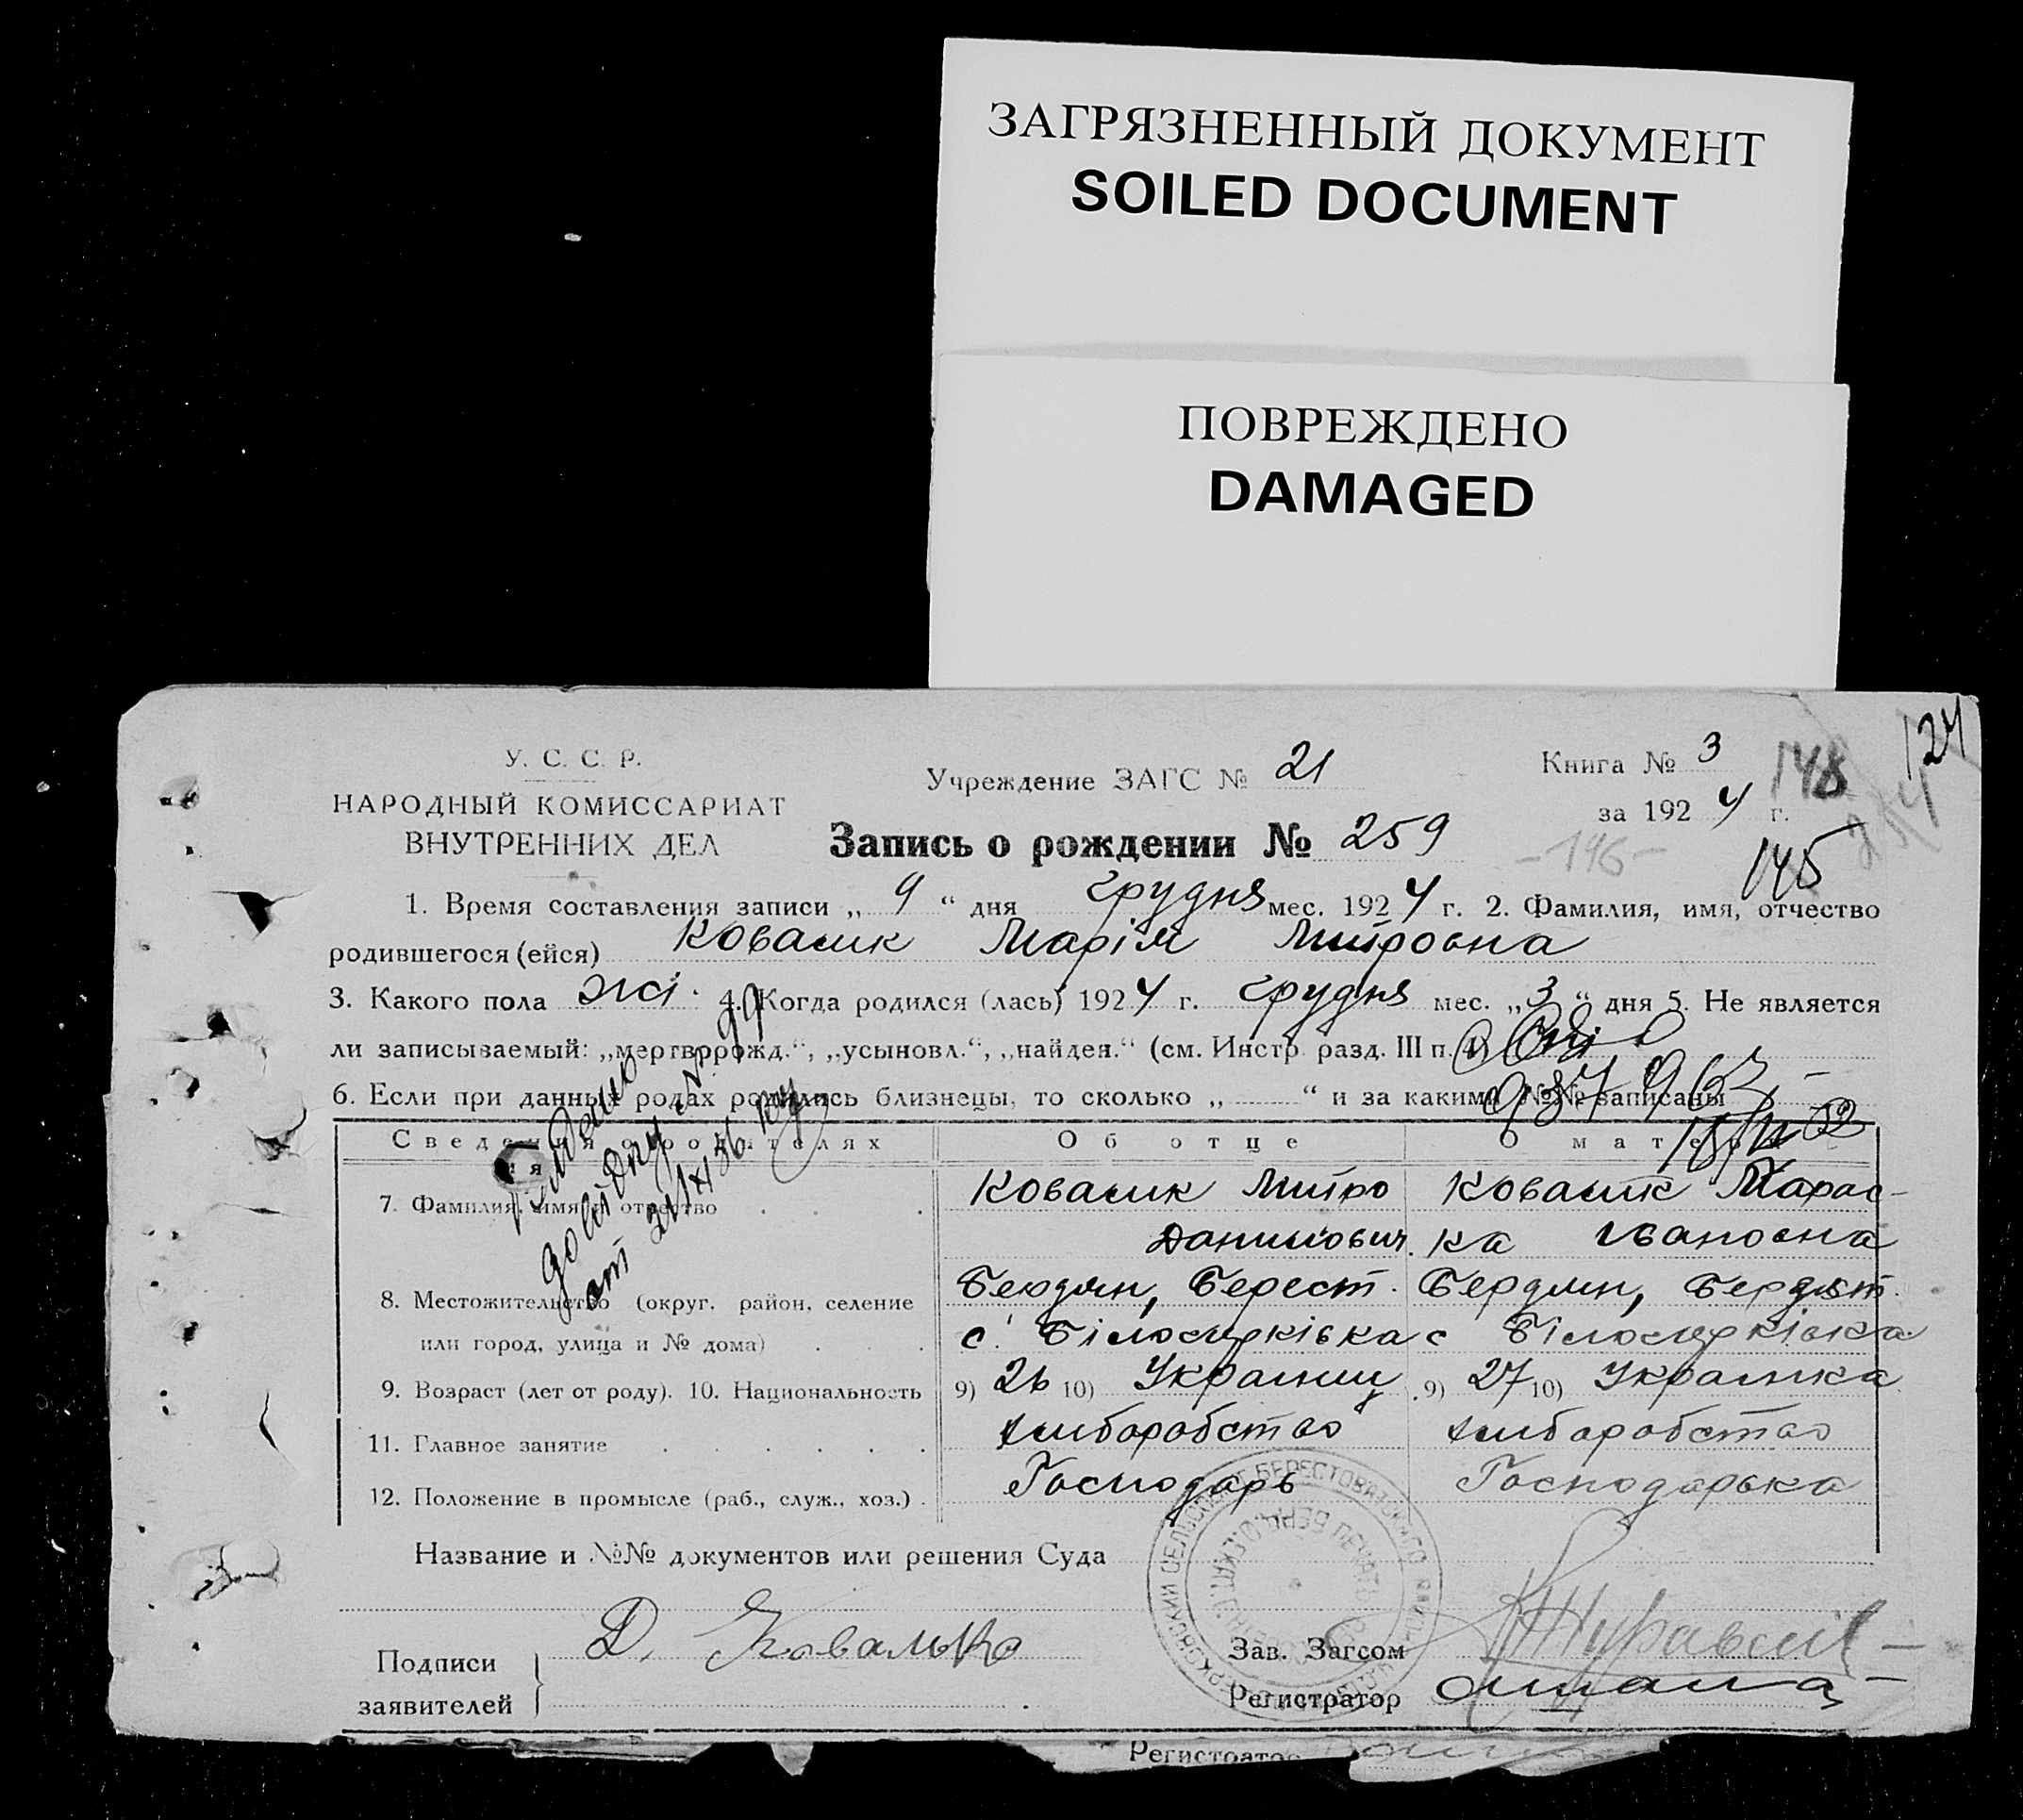 ЗАГРЯЗНЕННЫЙ ДОКУМЕНТ
SOILED DOCUMENT
ПОВРЕЖДЕНО
DAMAGED
124
У. С. С. Р.
НАРОДНЫЙ КОМИССАРИАТ
ВНУТРЕННИХ ДЕЛ
Учреждение ЗАГС № 21
Книга № 3
148
за 192 4 г.
Запись о рождении № 259
-146-
145
1. Время составления записи „ 9 “ дня грудня мес. 192 4 г. 2. Фамилия, имя, отчество
родившегося (ейся) Ковалик Марія Митровна
3. Какого пола жі. 4. Когда родился (лась) 192 4 г. грудня мес. „ 3 “ дня 5. Не является
ли записываемый: „мертворожд.“, „усыновл.“, „найден.“ (см. Инстр. разд. III п. 4)
6. Если при данных родах родились близнецы, то сколько „ “ и за какими №№ записаны
Сведения о родителях Об отце О матери
7. Фамилия, имя и отчество Ковалик Митро Ковалик Парас-
Данилович. ка Івановна
8. Местожительство (округ. район, селение Бердян, Берест. Бердян, Берест.
или город, улица и № дома) с. Білоцерківка с Білоцерківка
9. Возраст (лет от роду). 10. Национальность 9) 26 10) Украинец 9) 27 10) Украинка
11. Главное занятие хліборобство хліборобство
12. Положение в промысле (раб., служ., хоз.) Господарь Господарька
Название и №№ документов или решения Суда
Подписи
заявителей
Д. Ковалько
Зав. Загсом
Регистратор
Регистратор